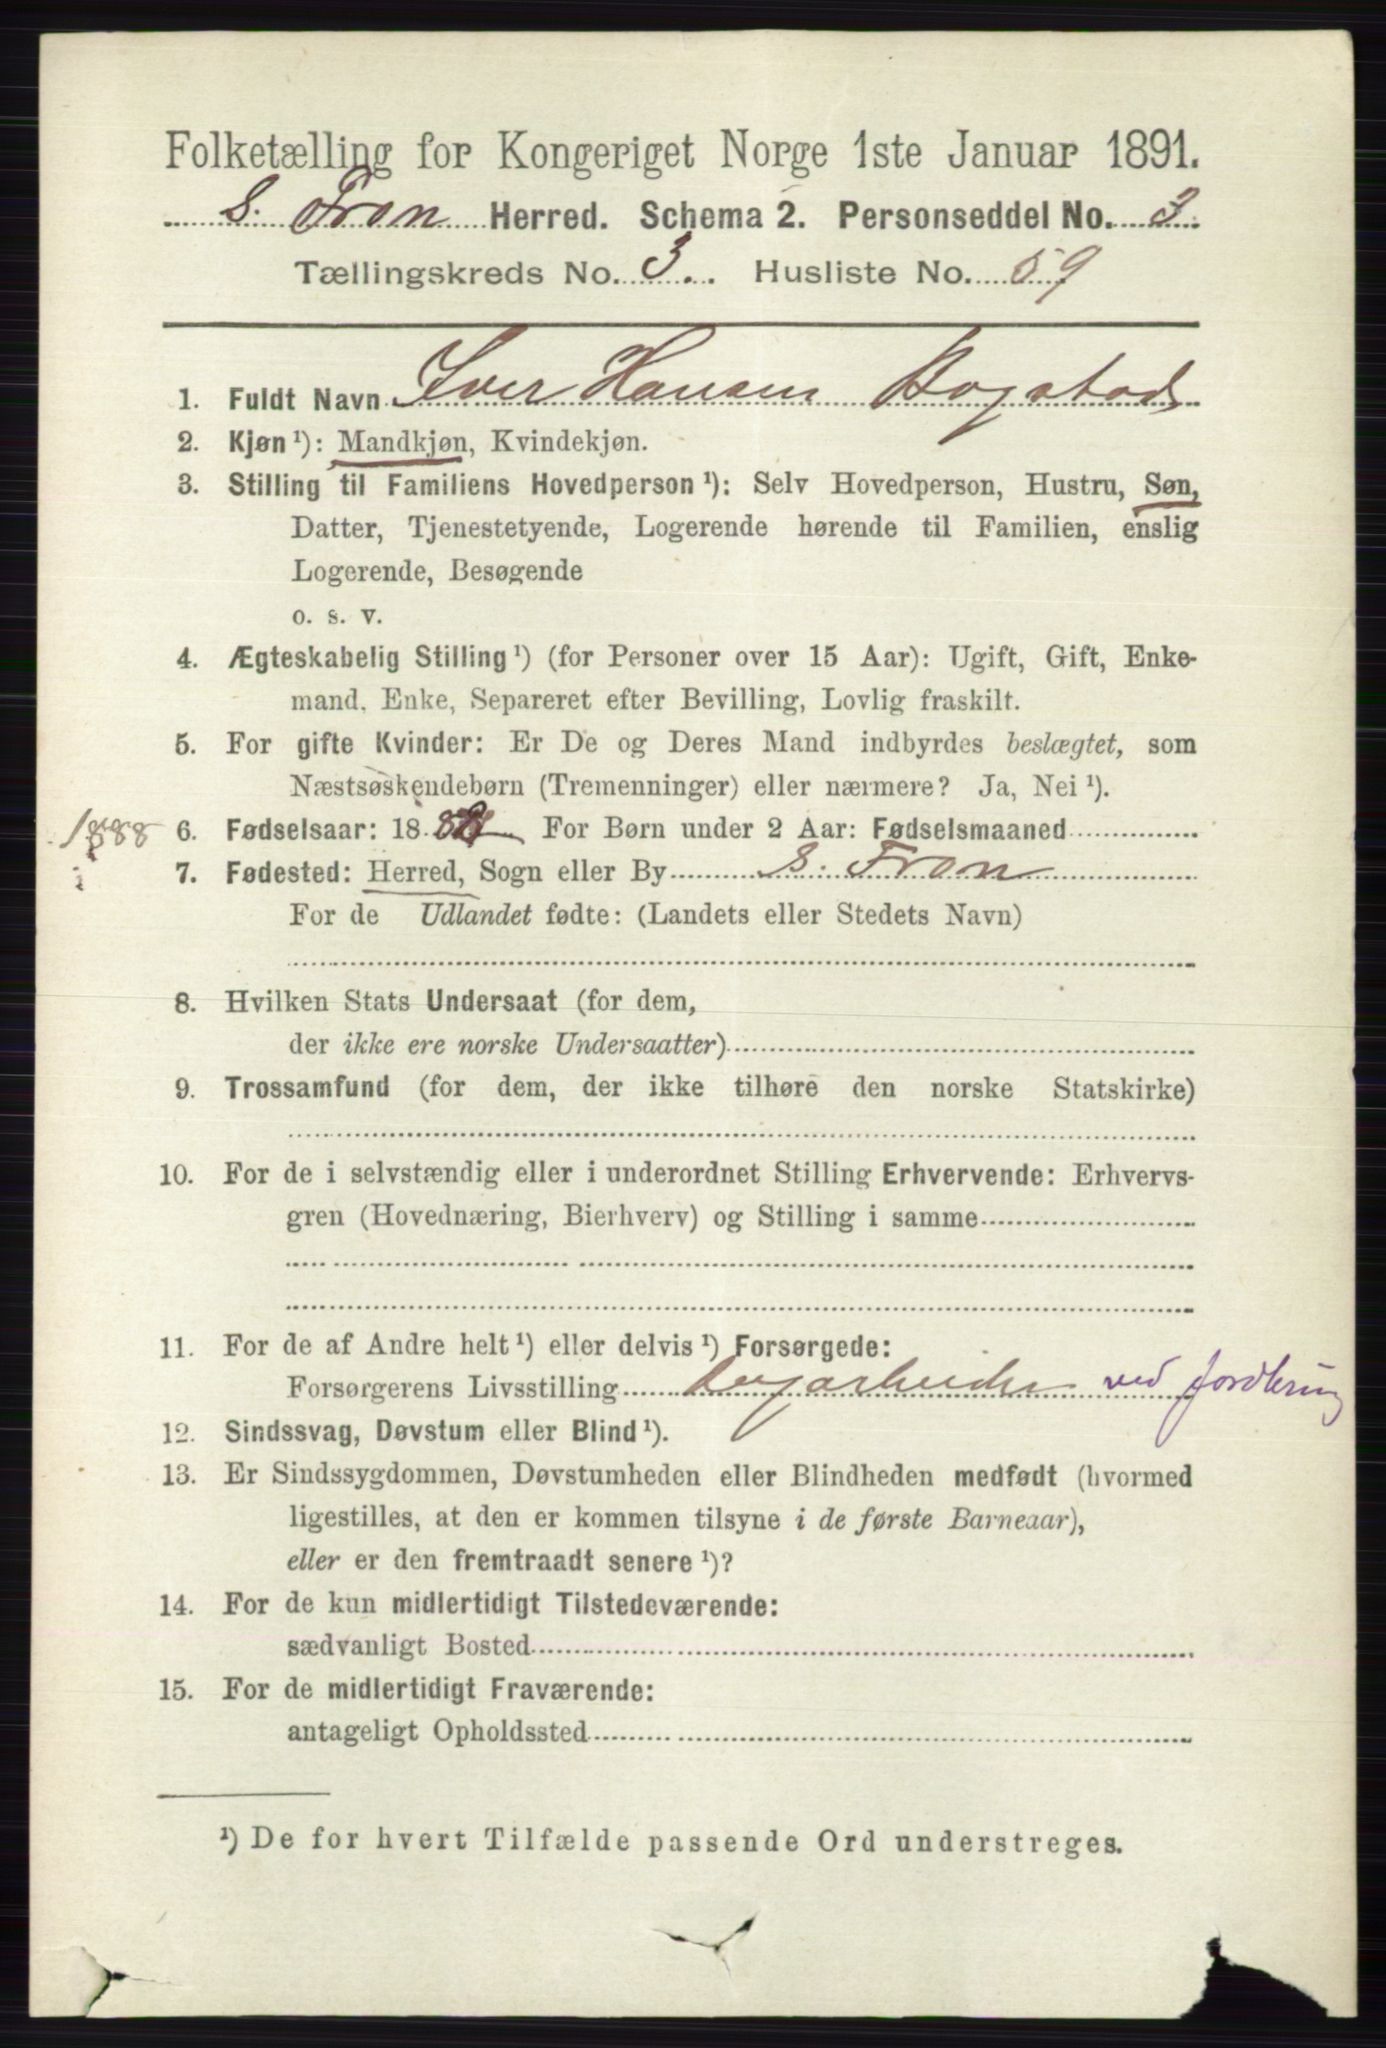 Folketælling for Kongeriget Norge 1ste Januar 1891.
S. Fron Herred. Schema 2. Personseddel No. 3.
Tællingskreds No. 3. Husliste No. 59
1. Fuldt Navn Iver Hansen
2. Kjøn ¹): Mandkjøn, Kvindekjøn.
3. Stilling til Familiens Hovedperson ¹): Selv Hovedperson, Hustru, Søn,
Datter, Tjenestetyende, Logerende hørende til Familien, enslig
Logerende, Besøgende
o. s. v.
4. Ægteskabelig Stilling ¹) (for Personer over 15 Aar): Ugift, Gift, Enke-
mand, Enke, Separeret efter Bevilling, Lovlig fraskilt.
5. For gifte Kvinder: Er De og Deres Mand indbyrdes beslægtet, som
Næstsøskendebørn (Tremenninger) eller nærmere? Ja, Nei ¹).
1888 6. Fødselsaar: 18 For Børn under 2 Aar: Fødselsmaaned
7. Fødested: Herred, Sogn eller By S. Fron
For de Udlandet fødte: (Landets eller Stedets Navn)
8. Hvilken Stats Undersaat (for dem,
der ikke ere norske Undersaatter)
9. Trossamfund (for dem, der ikke tilhøre den norske Statskirke)
10. For de i selvstændig eller i underordnet Stilling Erhvervende: Erhvervs-
gren (Hovednæring, Bierhverv) og Stilling i samme
11. For de af Andre helt ¹) eller delvis ¹) Forsørgede:
Forsørgerens Livsstilling Dagarbeider ved Jordbrug
12. Sindssvag, Døvstum eller Blind ¹).
13. Er Sindssygdommen, Døvstumheden eller Blindheden medfødt (hvormed
ligestilles, at den er kommen tilsyne i de første Barneaar),
eller er den fremtraadt senere ¹)?
14. For de kun midlertidigt Tilstedeværende:
sædvanligt Bosted
15. For de midlertidigt Fraværende:
antageligt Opholdssted
¹) De for hvert Tilfælde passende Ord understreges.